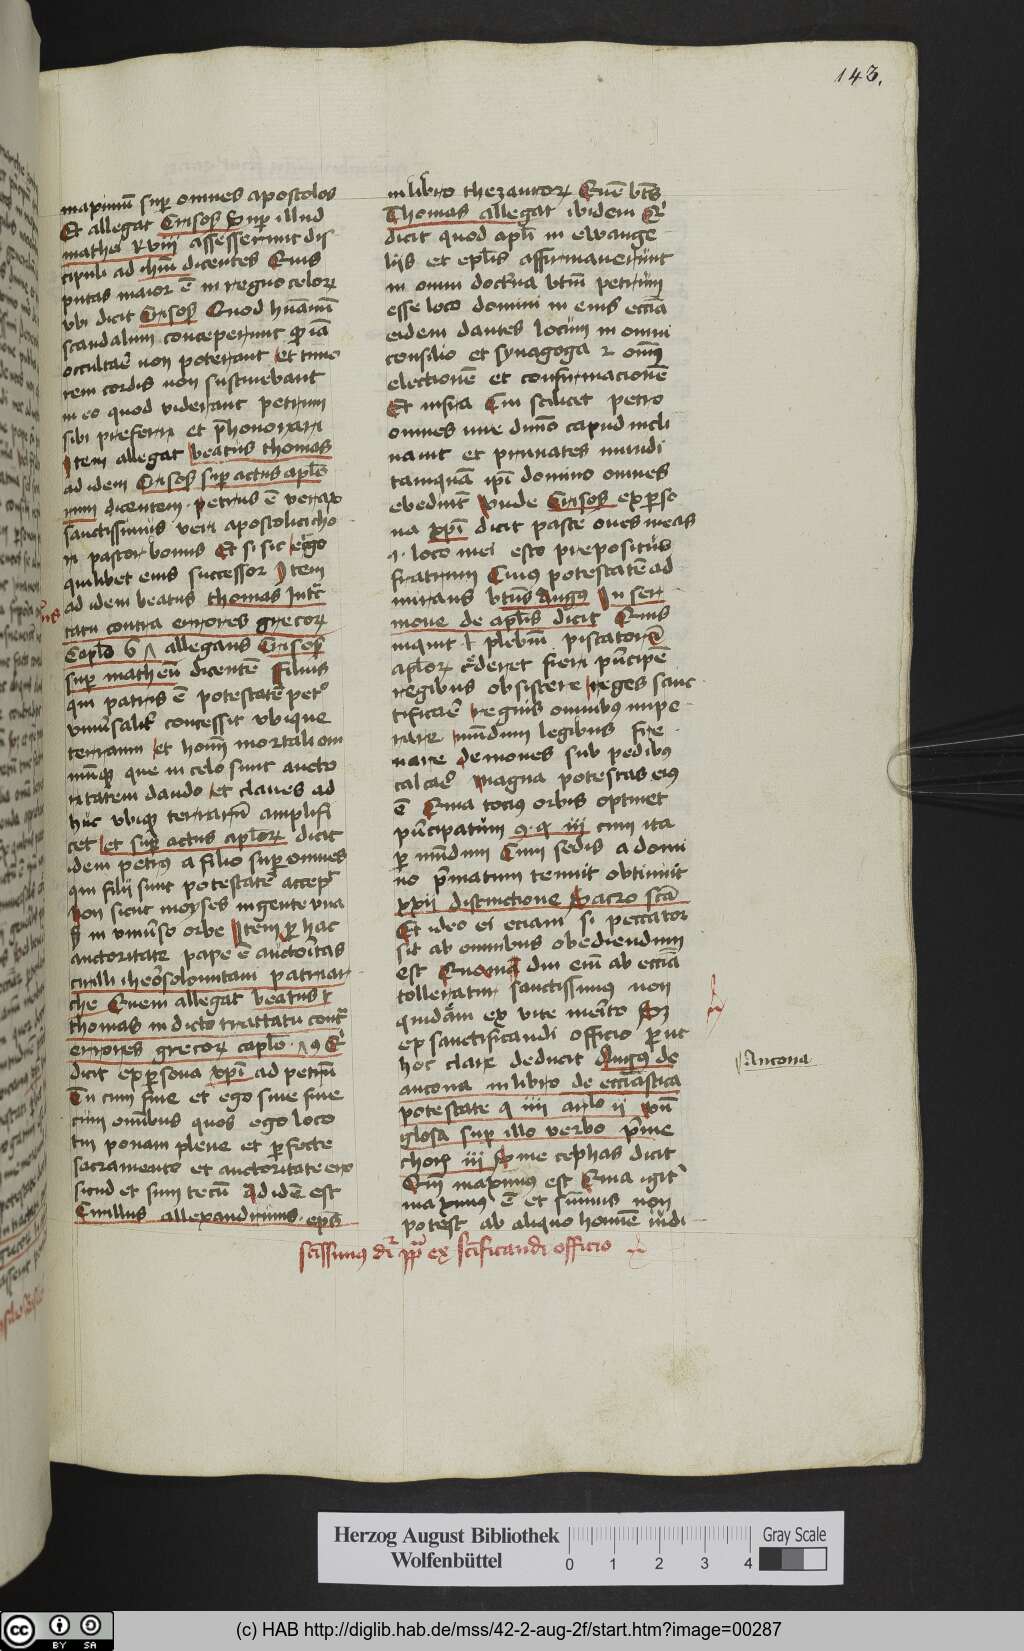 143.
maximū supꝑ omnes apostolos
Et allegat Crisos Sup illud
mathei xviij assesserunt dis
cipuli ad ihm̄ dicentes Quis
putas maior ē in regno celoꝝ
vbi dicit Crisos Quod hu͞anū
scandalum conceperunt qr iā
occultaē non poterant et timo
rem cordis non sustinebant
in eo quod viderant petrum
sibi preferri et p̄honorari
Item allegat beatus thomas
ad idem Crisos sup actus apl̄o
rum dicentem petrus ē verax
sanctissimus veri apostolici cho
ri pastor bonus Et si sic ergo
quilibet eius successor Item
ad idem beatus thomas Int͛c
tatu contra errores grecoꝝ
Caplo 6 allegans Crisos
sup matheū dicentē Filius
qui patris ē potestatē pet͛o
vniu͛salit͛ concessit vbique
terrarum et hom̄i mortali om
niūqꝫ que in celo sunt aucto
ritatem dando et claues ad
huc vbiqꝫ terrarū amplifi
cet et sup actus aploꝝ dicit
idem petrꝰ a filio sup omnes
qui filii sunt potestatē accepit
non sicut moyses in gente vna
sꝫ in vniu͛so orbe Item ꝑ hac
auctoritate pape ē auctoritas
cirilli iherosolomitani patriar
che Quem allegat beatus
thomas in dicto tractatu cont͛
errores grecoꝝ caplo
dicit ex ꝑsona xpī ad petrū
Tu cum fine et ego sine fine
cum omībus quos ego loco
tui ponam plene et ꝑfecte
sacramento et auctoritate ero
sicud et sum tecū Ad idē est
Cirillus allexandrinus eps̄
in libro thezauroꝝ Quē bt̄s
Thomas allegat ibidem
dicit quod apl̄i in ewange
lijs et epl̄is affirmauerunt
in omni doctrīa vtiū petrum
esse loco domini in eius ecc̄ia
eidem dantes locum in omni
consilio et synagoga ⁊ omī
electionē et confirmacionē
Et infra Cui scilicet petro
omnes iure diuīo capud incli
nant et primates mundi
tamquā ip̄i domino omnes
obediūt Unde Crisos ex ꝑso
na xpī dicit pasce oues meas
.i. loco mei esto prepositus
fratrum Cuiꝰ potestatē ad
mirans bt̄us Augꝰ In ser
mone de apl̄is dicit Quis
inquit plebiū piscatorē
aploꝝ crederet fieri p͛ncipē
regibus obsistere reges sanc
tificaē regnis omnibꝰ impe
rare mundum legibus fre
nare demones sub pedibus
calcaē magna potestas eiꝰ
ē Quia tociꝰ orbis optinet
p͛ncipatum
ꝑ mūdum Cum sedis a domi
no p͛matum tenuit obtinuit
xxij distinctione Sacro sc̄a
Et ideo ei eciam si peccator
sit ab omnibus obediendum
est Quoniā diu em̄ ab ecc̄ia
tolleratur sanctissimus non
quidām ex vite merito Sꝫ
ex sanctificandi officio ꝑ ut
hoc clare deducit Augꝰ de
ancona in libro de ecc̄iastica
potestate q iiij articlo ij
glosa sup illo verbo p͛me
choꝝ iij Siue cephas dicit
Qui maximus est Quia igit͛
maximus ē et sūmus non
potest ab aliquo homīe iudi
Ancona
sc̄issimus dr̄ pp̄a ex sc̄ificandi officio
Herzog August Bibliothek
Wolfenbüttel
0 1 2 3 4
Gray Scale
cc BY SA
(c) HAB http://diglib.hab.de/mss/42-2-aug-2f/start.htm?image=00287